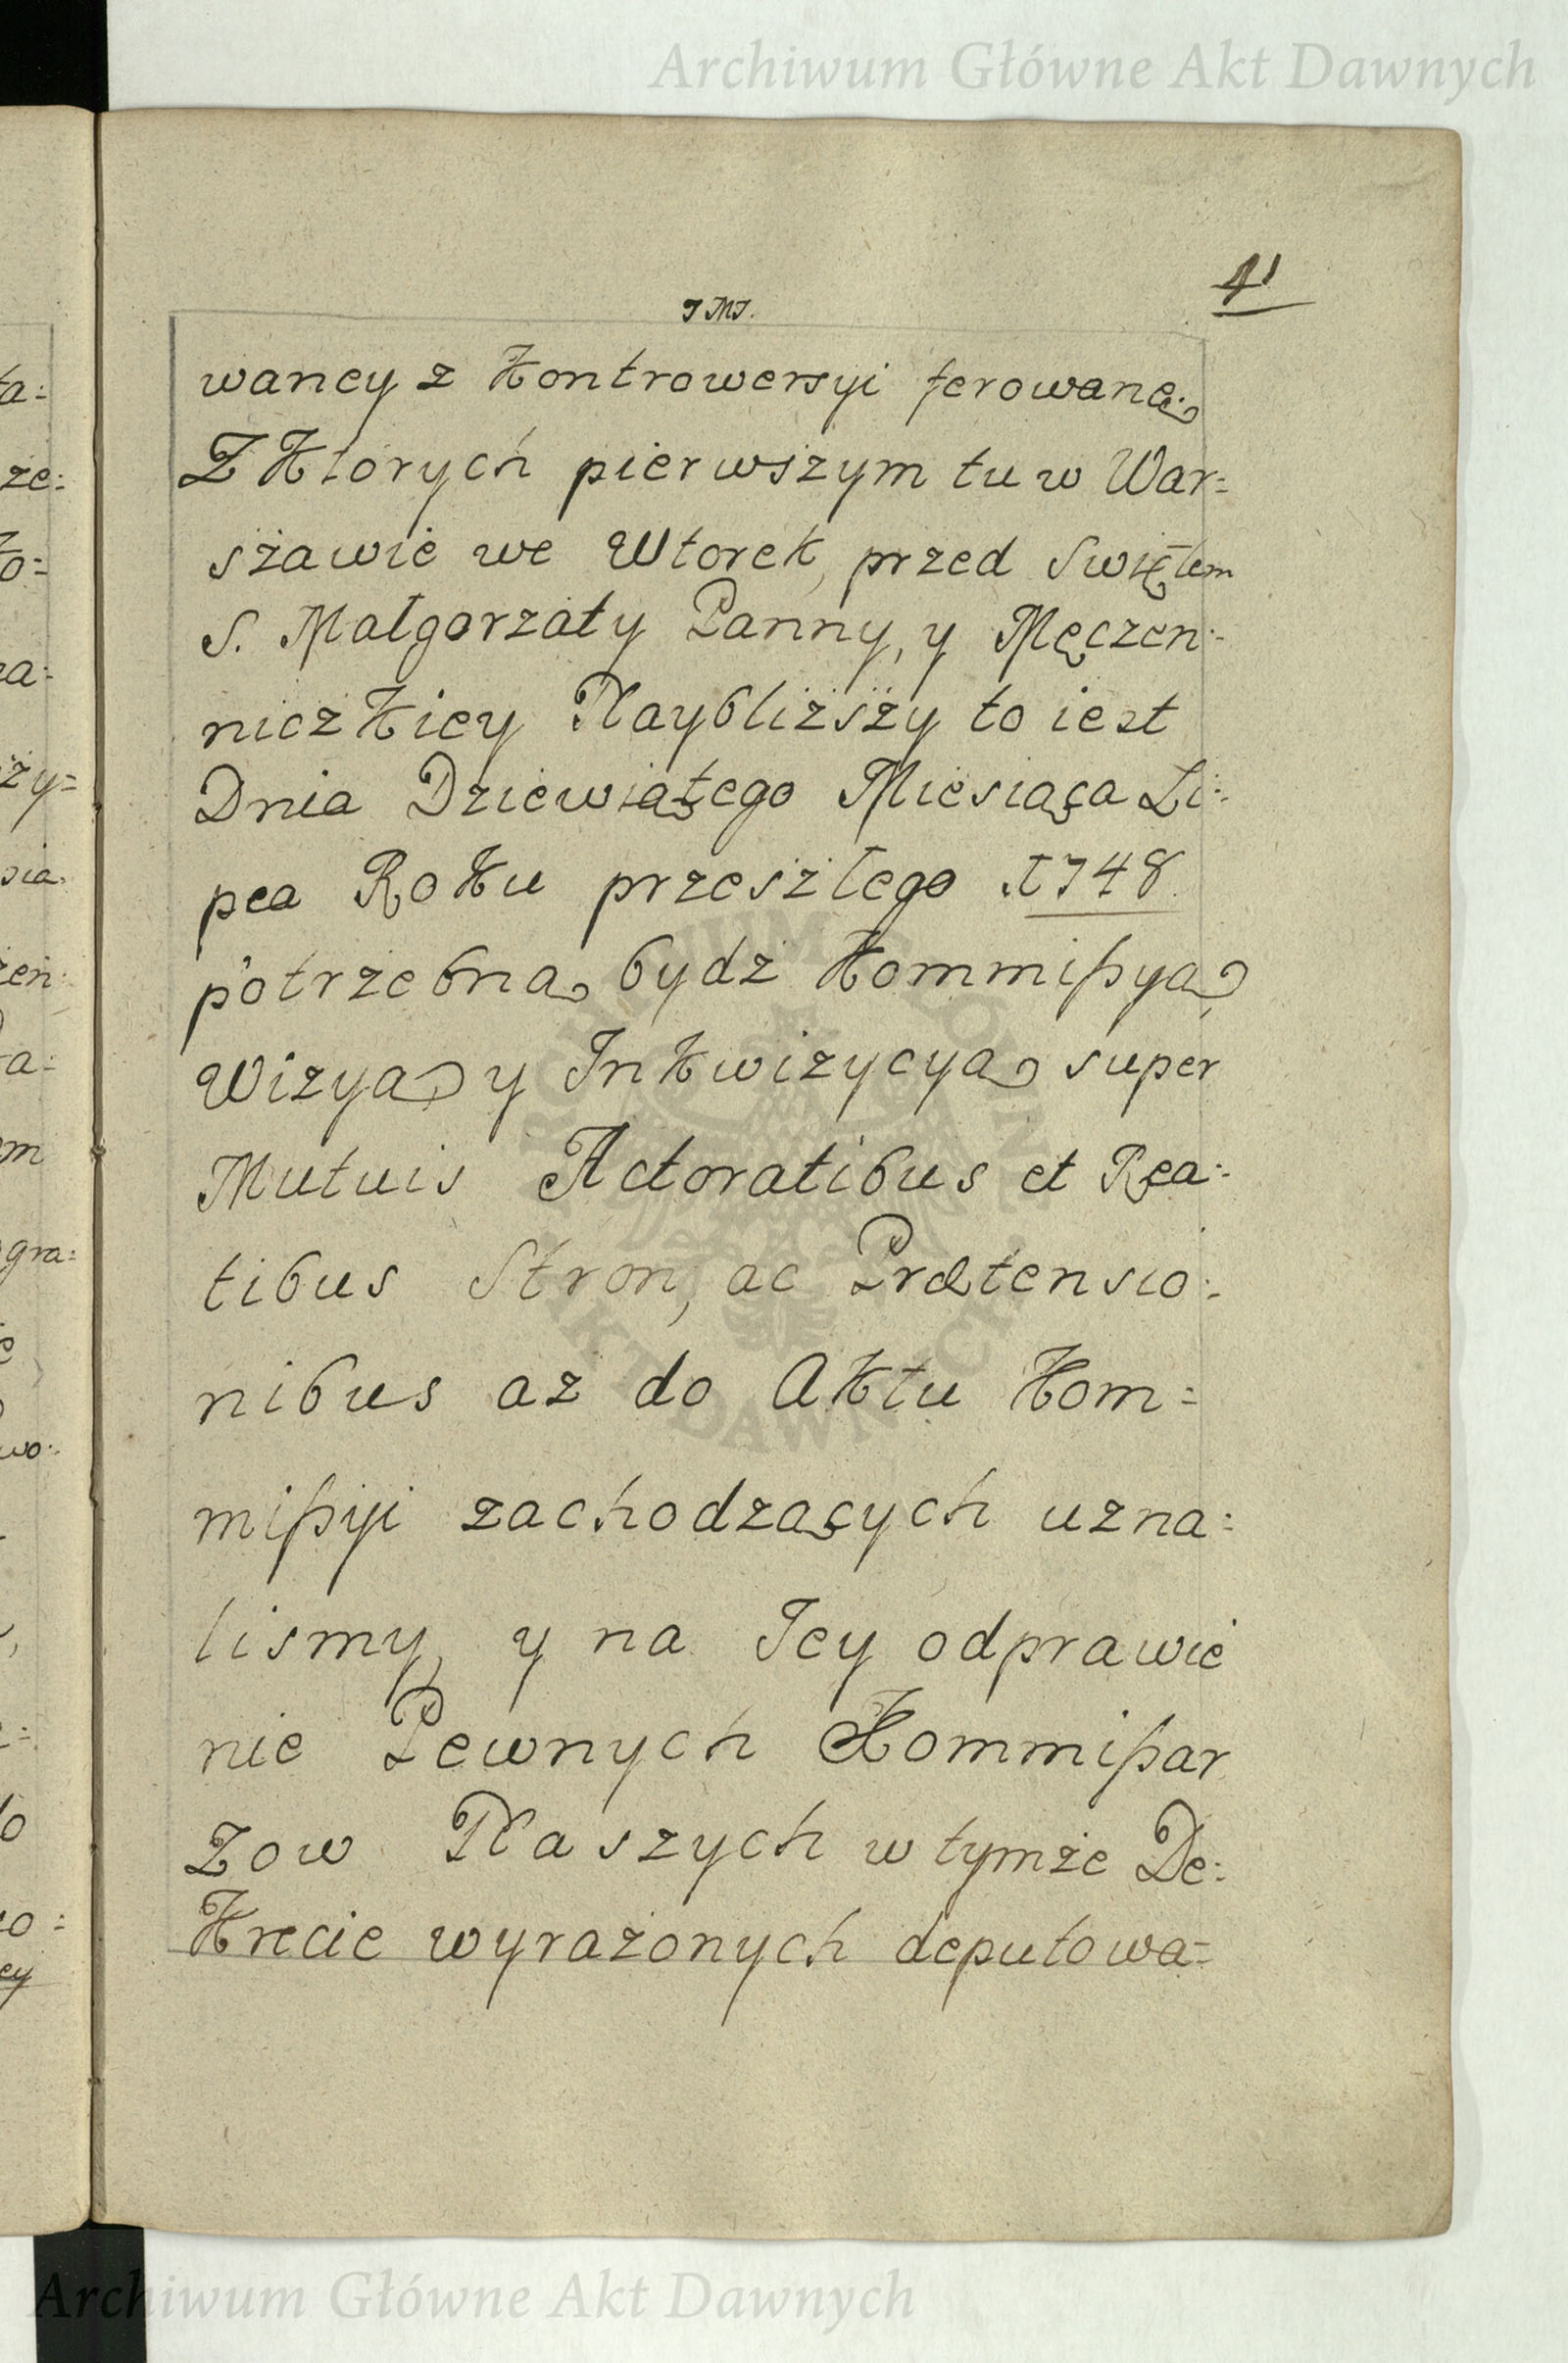 Archiwum Główne Akt Dawnych
J M J.
waney z Kontrowersyi ferowane.
Z Ktorych pierwszym tu w War=
szawie we Wtorek przed Swiętem
S. Małgorzaty Panny, y Męczen=
niczkiey Naybliższy to iest
Dnia Dziewiątego Miesiąca Li=
pca Roku przeszłego 1748
potrzebną bydz Kommißyą,
Wizyą y Inkwizycyą super
Mutuis Actoratibus et Rea=
tibus Stron, ac Prætensio=
nibus az do Aktu Kom=
mißyi zachodzących uzna=
lismy, y na Jey odprawie
nie Pewnych Kommißar
zow Naszych w tymże De=
krecie wyrażonych deputowa=
Archiwum Główne Akt Dawnych